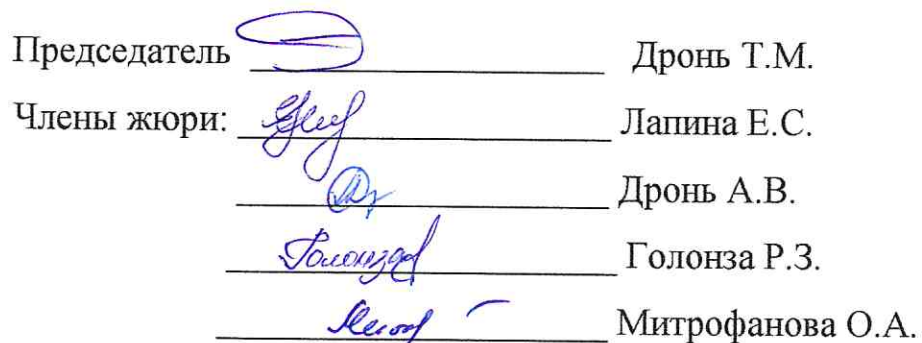 Председатель Дронь Т.М.
Члены жюри: Лапина Е.С.
Дронь А.В.
Голонза Р.З.
Митрофанова О.А.